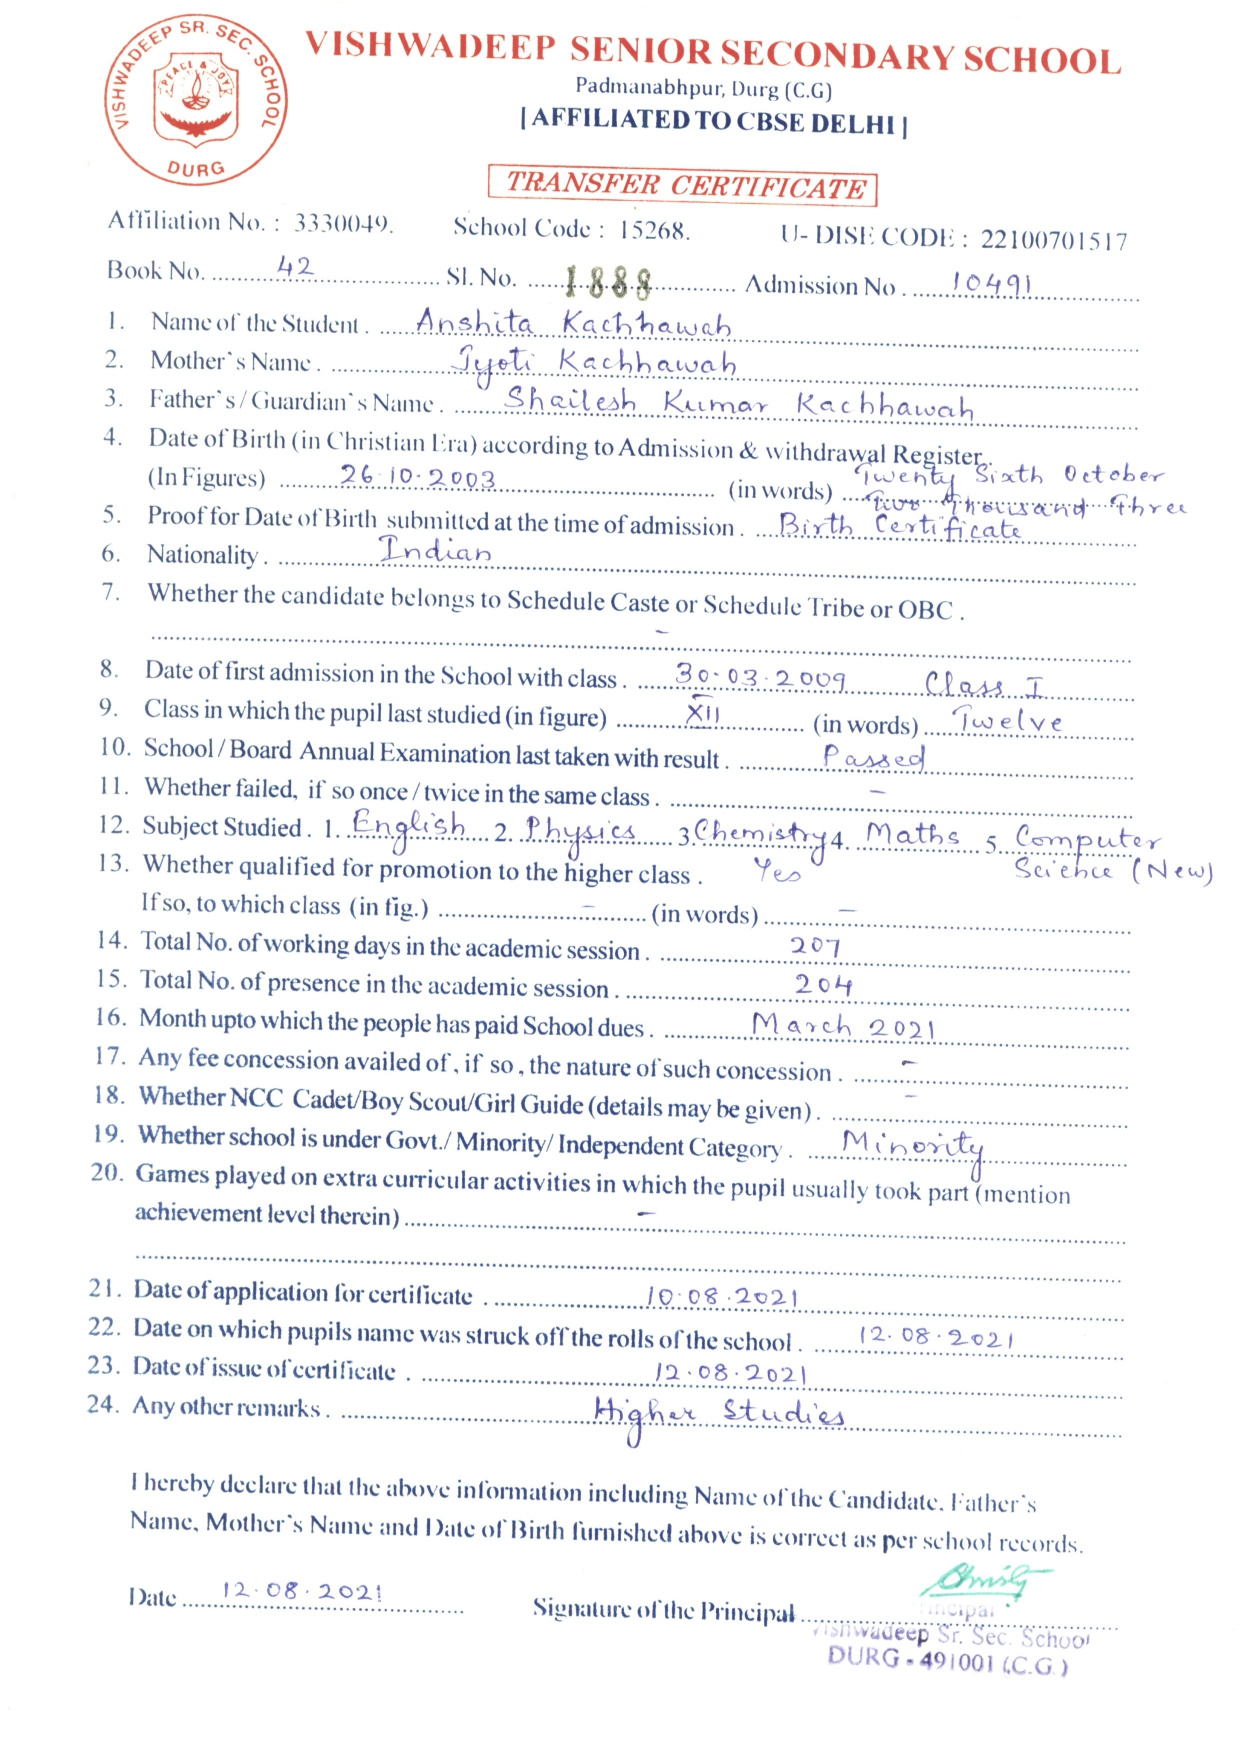 VISHWADEEP SR. SEC. SCHOOL
PEACE & JOY
DURG
VISHWADEEP SENIOR SECONDARY SCHOOL
Padmanabhpur, Durg (C.G)
| AFFILIATED TO CBSE DELHI |
TRANSFER CERTIFICATE
Affiliation No. : 3330049. School Code : 15268. U- DISE CODE : 22100701517
Book No. 42 Sl. No. 1888 Admission No. 10491
1. Name of the Student. Anshita Kachhawah
2. Mother's Name. Jyoti Kachhawah
3. Father's/Guardian's Name. Shailesh Kumar Kachhawah
4. Date of Birth (in Christian Era) according to Admission & withdrawal Register.
(In Figures) 26.10.2003 (in words) Twenty Sixth October
Two Thousand Three
5. Proof for Date of Birth submitted at the time of admission. Birth Certificate
6. Nationality. Indian
7. Whether the candidate belongs to Schedule Caste or Schedule Tribe or OBC.
-
8. Date of first admission in the School with class. 30.03.2009 Class I
9. Class in which the pupil last studied (in figure) XII (in words) Twelve
10. School/Board Annual Examination last taken with result. Passed
11. Whether failed, if so once/twice in the same class. -
12. Subject Studied. 1. English 2. Physics 3. Chemistry 4. Maths 5. Computer
Science (New)
13. Whether qualified for promotion to the higher class. Yes
If so, to which class (in fig.) - (in words) -
14. Total No. of working days in the academic session. 207
15. Total No. of presence in the academic session. 204
16. Month upto which the people has paid School dues. March 2021
17. Any fee concession availed of, if so, the nature of such concession. -
18. Whether NCC Cadet/Boy Scout/Girl Guide (details may be given). -
19. Whether school is under Govt./ Minority/ Independent Category. Minority
20. Games played on extra curricular activities in which the pupil usually took part (mention
achievement level therein) -
21. Date of application for certificate. 10.08.2021
22. Date on which pupils name was struck off the rolls of the school. 12.08.2021
23. Date of issue of certificate. 12.08.2021
24. Any other remarks. Higher Studies
I hereby declare that the above information including Name of the Candidate, Father's
Name, Mother's Name and Date of Birth furnished above is correct as per school records.
Date 12.08.2021 Signature of the Principal
Principal
Vishwadeep Sr. Sec. School
DURG - 491001 (C.G.)